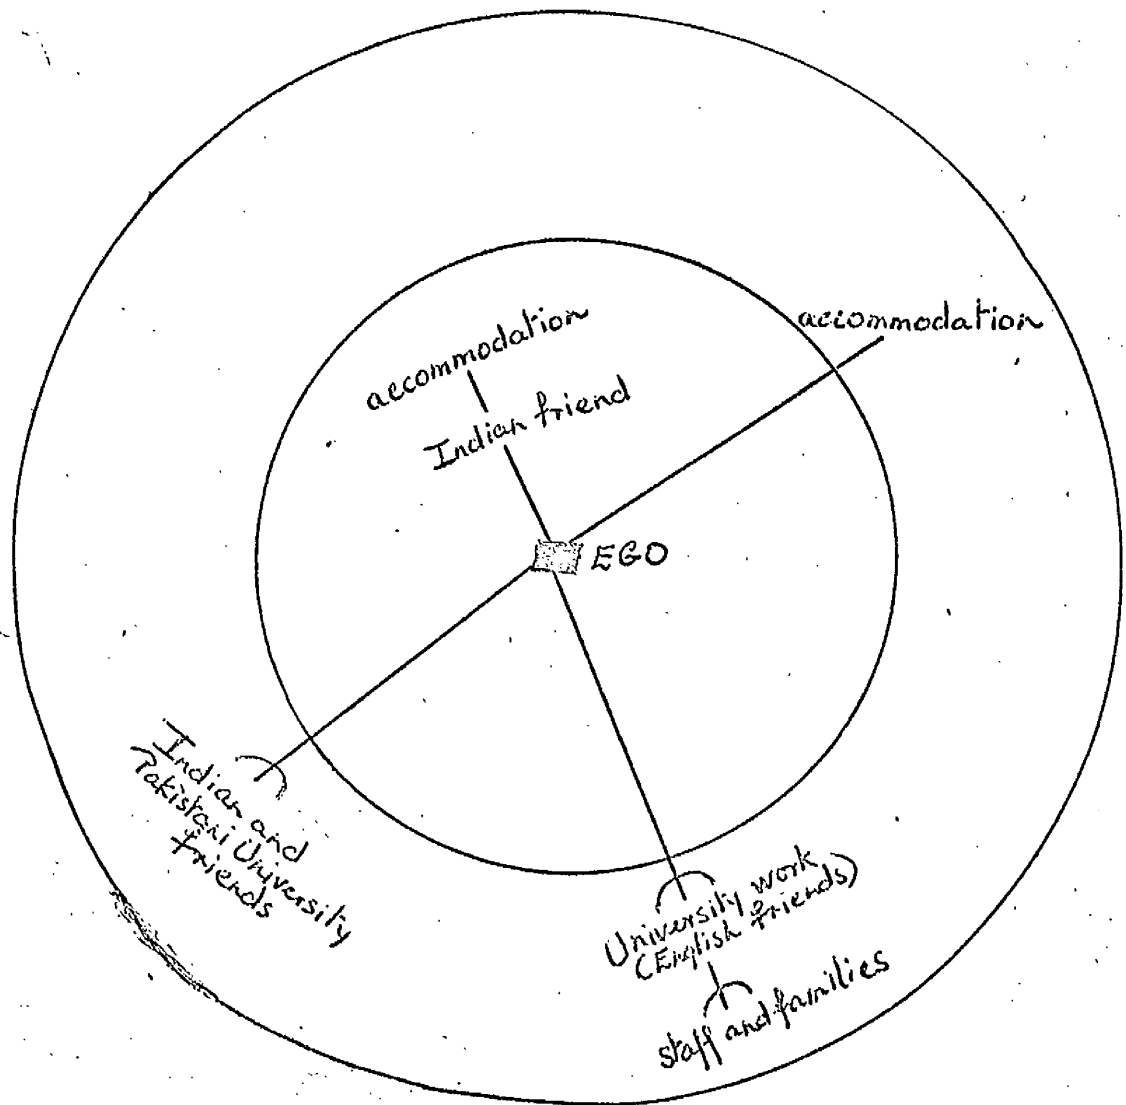 accommodation
accommodation
Indian friend
EGO
Indian and
Pakistani University
friends
University work
(English friends)
staff and families